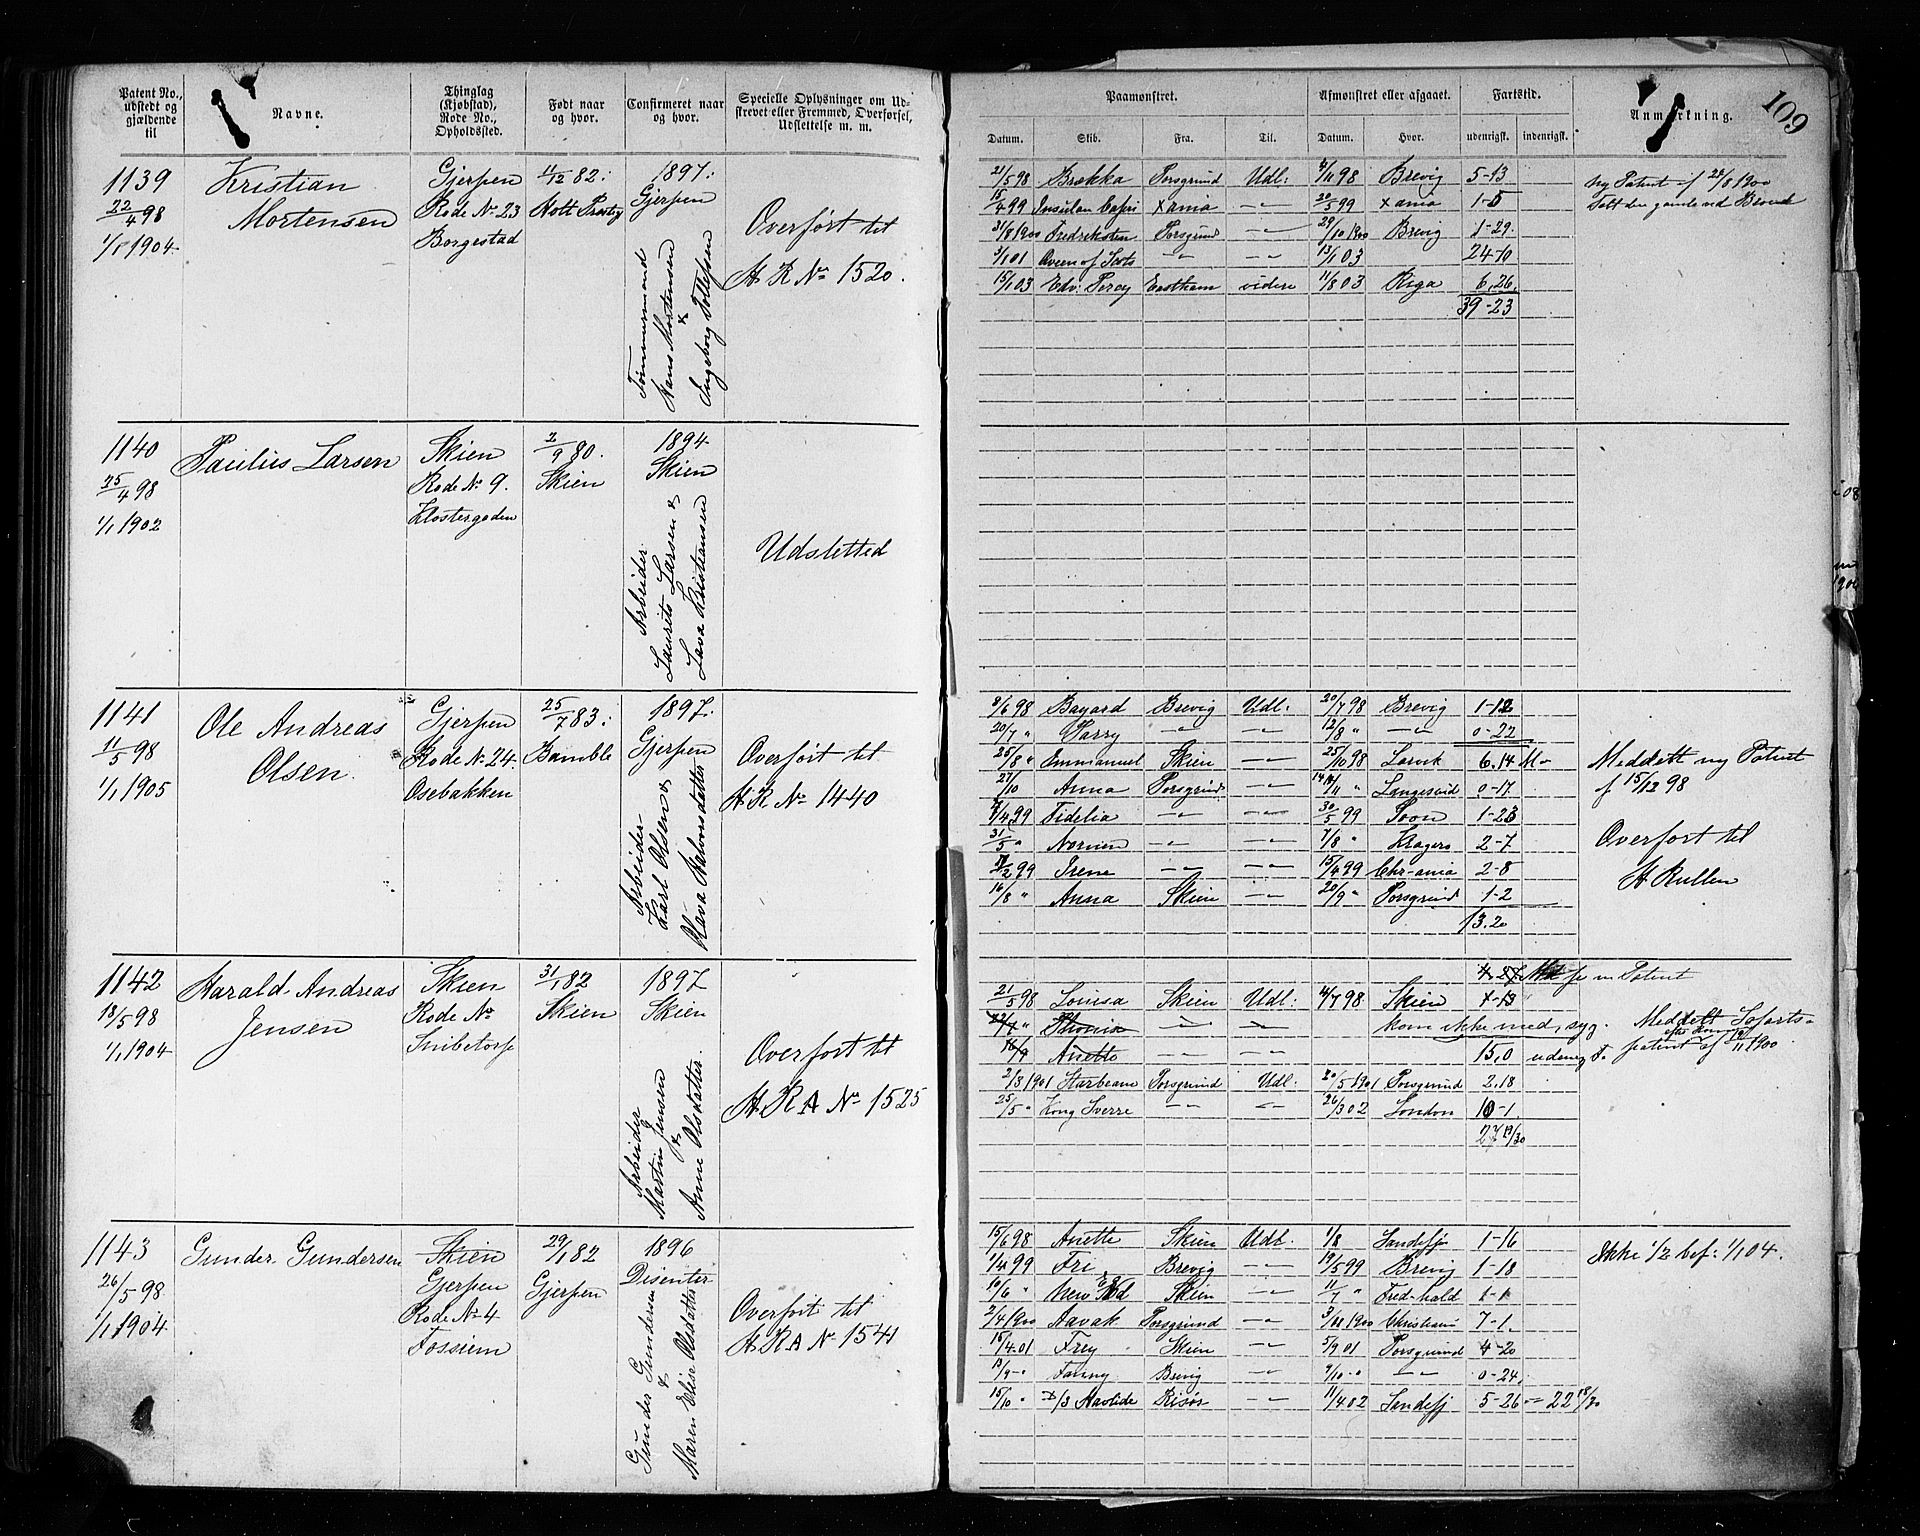 109
Patent No., udstedt og gjældende til
Navne.
Thinglag (Kjøbstad), Rode No., Opholdssted.
Født naar og hvor.
Confirmeret naar og hvor.
Specielle Oplysninger om Udstrevet eller Fremmed, Overførsel, Udslettelse m. m.
Paamønstret.
Afmønstret eller afgaaet.
Fartstid.
Datum. Skib. Fra. Til. Datum. Hvor. udenrigst. indenrigst.
1139
22/4 98
1/1 1904
Kristian
Mortensen
Gjerpen
Rode No 23
Borgestad
11/2 82.
Holt Præstgj
1897.
Gjerpen
Tømmermand
Hans Mortensen
&
Ingeborg Tollefsen
Overført til
H R No 1520.
21/5 98 Brækka Porsgrund Udl: 4/11 98 Brevig 5-13
15/4 99 Insulan Capri Xania -"- 20/5 99 Xania 1-5
31/8 1900 Fredriksten Porsgrund -"- 29/10 1900 Brevig 1-29.
3/1 01 Queen of Scots -"- -"- 13/1 03 24-10
15/1 03 Edv: Percy Eastham videre 11/8 03 Riga 6,26.
39-23
Ny Patent af 28/8 1900
1140
25/4 98
1/1 1902
Paulius Larsen
Skien
Rode No 9.
Klostergaden
2/9 80.
Skien
1894
Skien
Arbeider
Laurits Larsen &
Lava Kristiansen
Udsletted
1141
11/5 98
1/1 1905
Ole Andreas
Olsen
Gjerpen
Rode No 24.
Osebakken
25/7 83.
Bamble
1897.
Gjerpen
Arbeider
Karl Olsen &
Olava Halvorsdatter
Overført til
H R No 1440
8/6 98 Bayard Brevig Udl: 20/7 98 Brevig 1-12
20/7 " Garry -"- -"- 12/8 " -"- 0-22
25/8 " Immanuel Skien -"- 25/10 98 Larvik 6.14
27/10 Anna Porsgrund -"- 14/11 " Langesund 0-17
7/4 99 Fidelia -"- -"- 30/5 99 Soon 1-23
31/5 " Nornen -"- -"- 7/8 " Kragerø 2-7
7/2 99 Irene -"- -"- 15/4 99 Chr-ania 2-8
16/8 " Anna Skien -"- 20/9 " Porsgrund 1-2
13.20
Meddelt ny Patent
f 15/12 98
Overført til
H Rullen
1142
18/5 98
1/1 1904
Harald Andreas
Jensen
Skien
Rode No
Snibetorp
31/1 82
Skien
1897
Skien
Arbeider
Martin Jensen
&
Anne Olsdatter
Overført til
H R A No 1525
21/5 98 Louisa Skien Udl: 4/7 98 Skien 1-13
22/7 " -"- -"- kom ikke med, syg.
16/9 Anette -"- -"- 15,0 udenrigsf.
2/3 1901 Starbeam Porsgrund Udl. 20/5 1901 Porsgrund 2.18
25/5 " Kong Sverre -"- -"- 26/3 02 London 10-1
27 19/30
Meddelt Søfarts-
patent af 19/11 1900
1143
26/5 98
1/1 1904
Gunder Gundersen
Skien
Gjerpen
Rode No 4
Fossum
29/1 82
Gjerpen
1896
Disenter
Gunder Gundersen
&
Maren Elise Olsdatter
Overført til
H R A No 1541
15/6 98 Anette Skien Udl. 1/8 Sandefj 1-16
1/4 99 Fri Brevig -"- 19/5 99 Brevig 1-18
10/6 " Skien -"- 11/7 " Fred-hald 1-1
2/4 1900 Aavak Porsgrund -"- 3/11 1900 Christiania 7-1.
15/4 01 Frey Skien -"- 5/9 01 Porsgrund 4-20
Fanny Brevig -"- 9/10 -"- 0-24,
15/10 " D/S Havlide Risør -"- 11/4 02 Sandefj 5-26 = 22 18/30
Ikke 1/2 bef: 1/1 04.